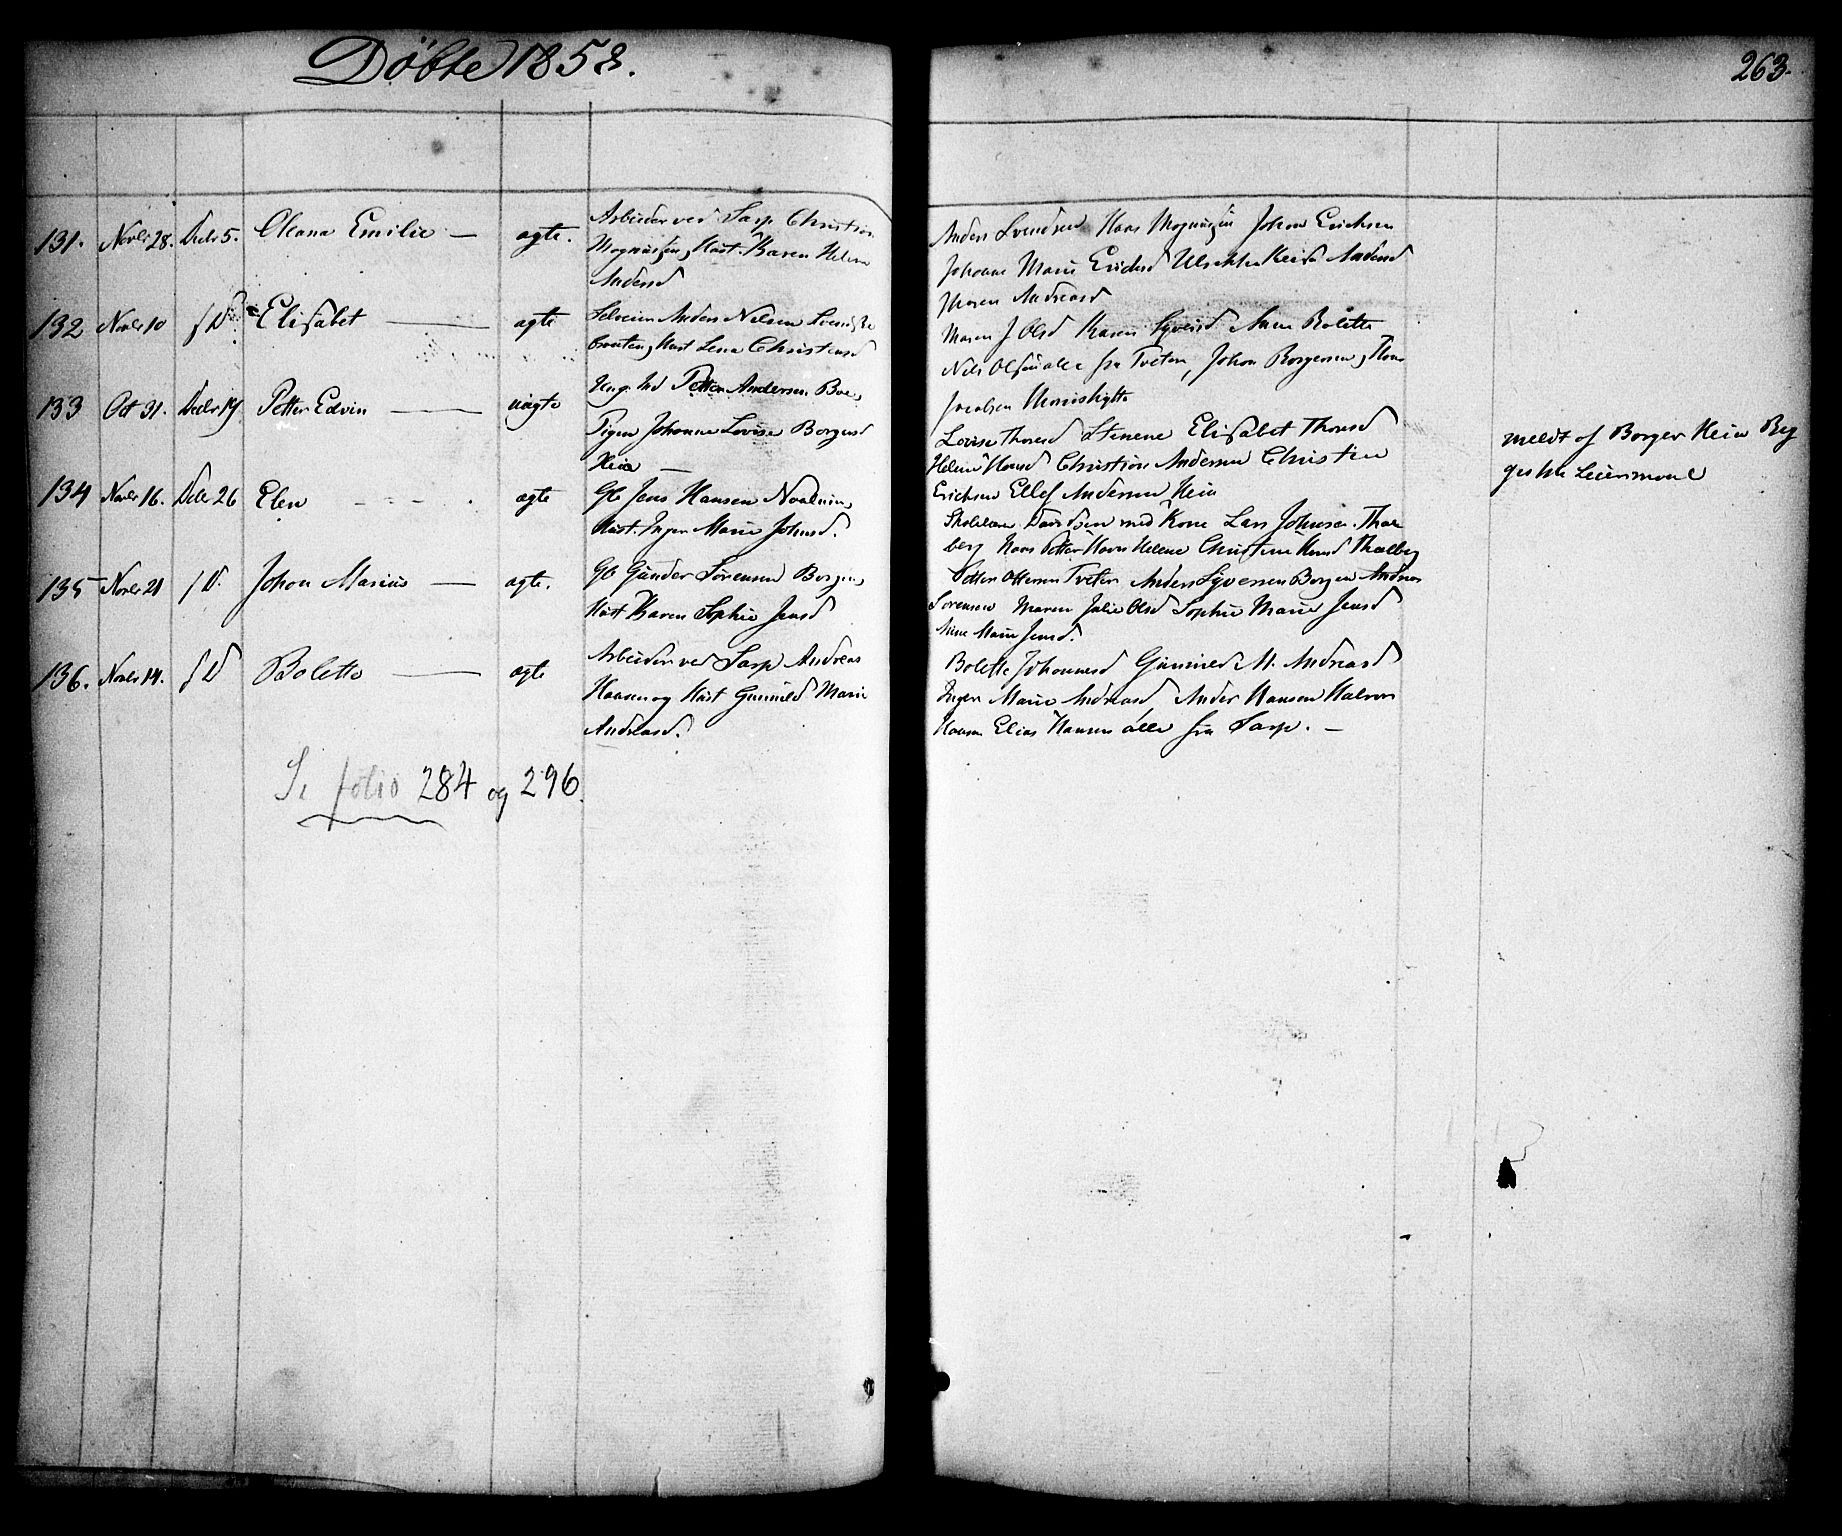 Döbte 1858.
263.
131. Novbr 28. Decbr 5. Oleana Emilie — ægte. Arbeider ved Sarp Christian
Magnussen, Hust. Karen Helena
Andersd
Anders Svendsen Hans Magnussen Johan Erichsen
Johanne Marie Ericksd Andersd
Maren Andreasd
132 Novbr 10 s D Elisabet — ægte Selveier Anders Nielsen
braaten, Hust Lena Christensd
Maren J Olsd Karen Syversd Anne Bolette
Nils alle fra Tveten, Johan Borgersen, Thor
Jacobsen
133 Oct 31. Decbr 19. Petter Edvin — uægte Ung. Petter Andersen Boe,
Pigen Johanne Lovise Borgersd
Heia —
Lovise Thoresd Elisabet Thoresd
Helene Hansd Christian Andersen Christen
Erichsen Ellef Andersen Heia
meldt af Borger Heia Beg
ges 1ste Leiermaal
134 Novbr 16. Decbr 26 Elen - - - ægte Gb Jens Hansen
Hust. Inger Marie Johnsd.
Skolelærer Davidsen med Kone Lars Johnsen Thal
berg Hans Petter Helene Christine Thalberg
135 Novbr 21 s D. Johan Marius — ægte. Gb Gunder Sørensen Borgen,
Hust Karen Sophie Jensd
Petter Ottersen Tveter Anders Syversen Borgen Andreas
Sorensen Maren Julie Olsd Sophie Marie Jensd
Anne Marie Jensd.
136. Novbr 14. s D Bolette — ægte Arbeider ved Sarp Andreas
Hansen og Hust Gunnild Marie
Andreasd.
Bolette Johannesd Gunnild M. Andreasd
Inger Marie Andreasd, Anders Hansen Halvor
Hansen Elias Hansen alle fra Sarp. —
Se folio 284 og 296.